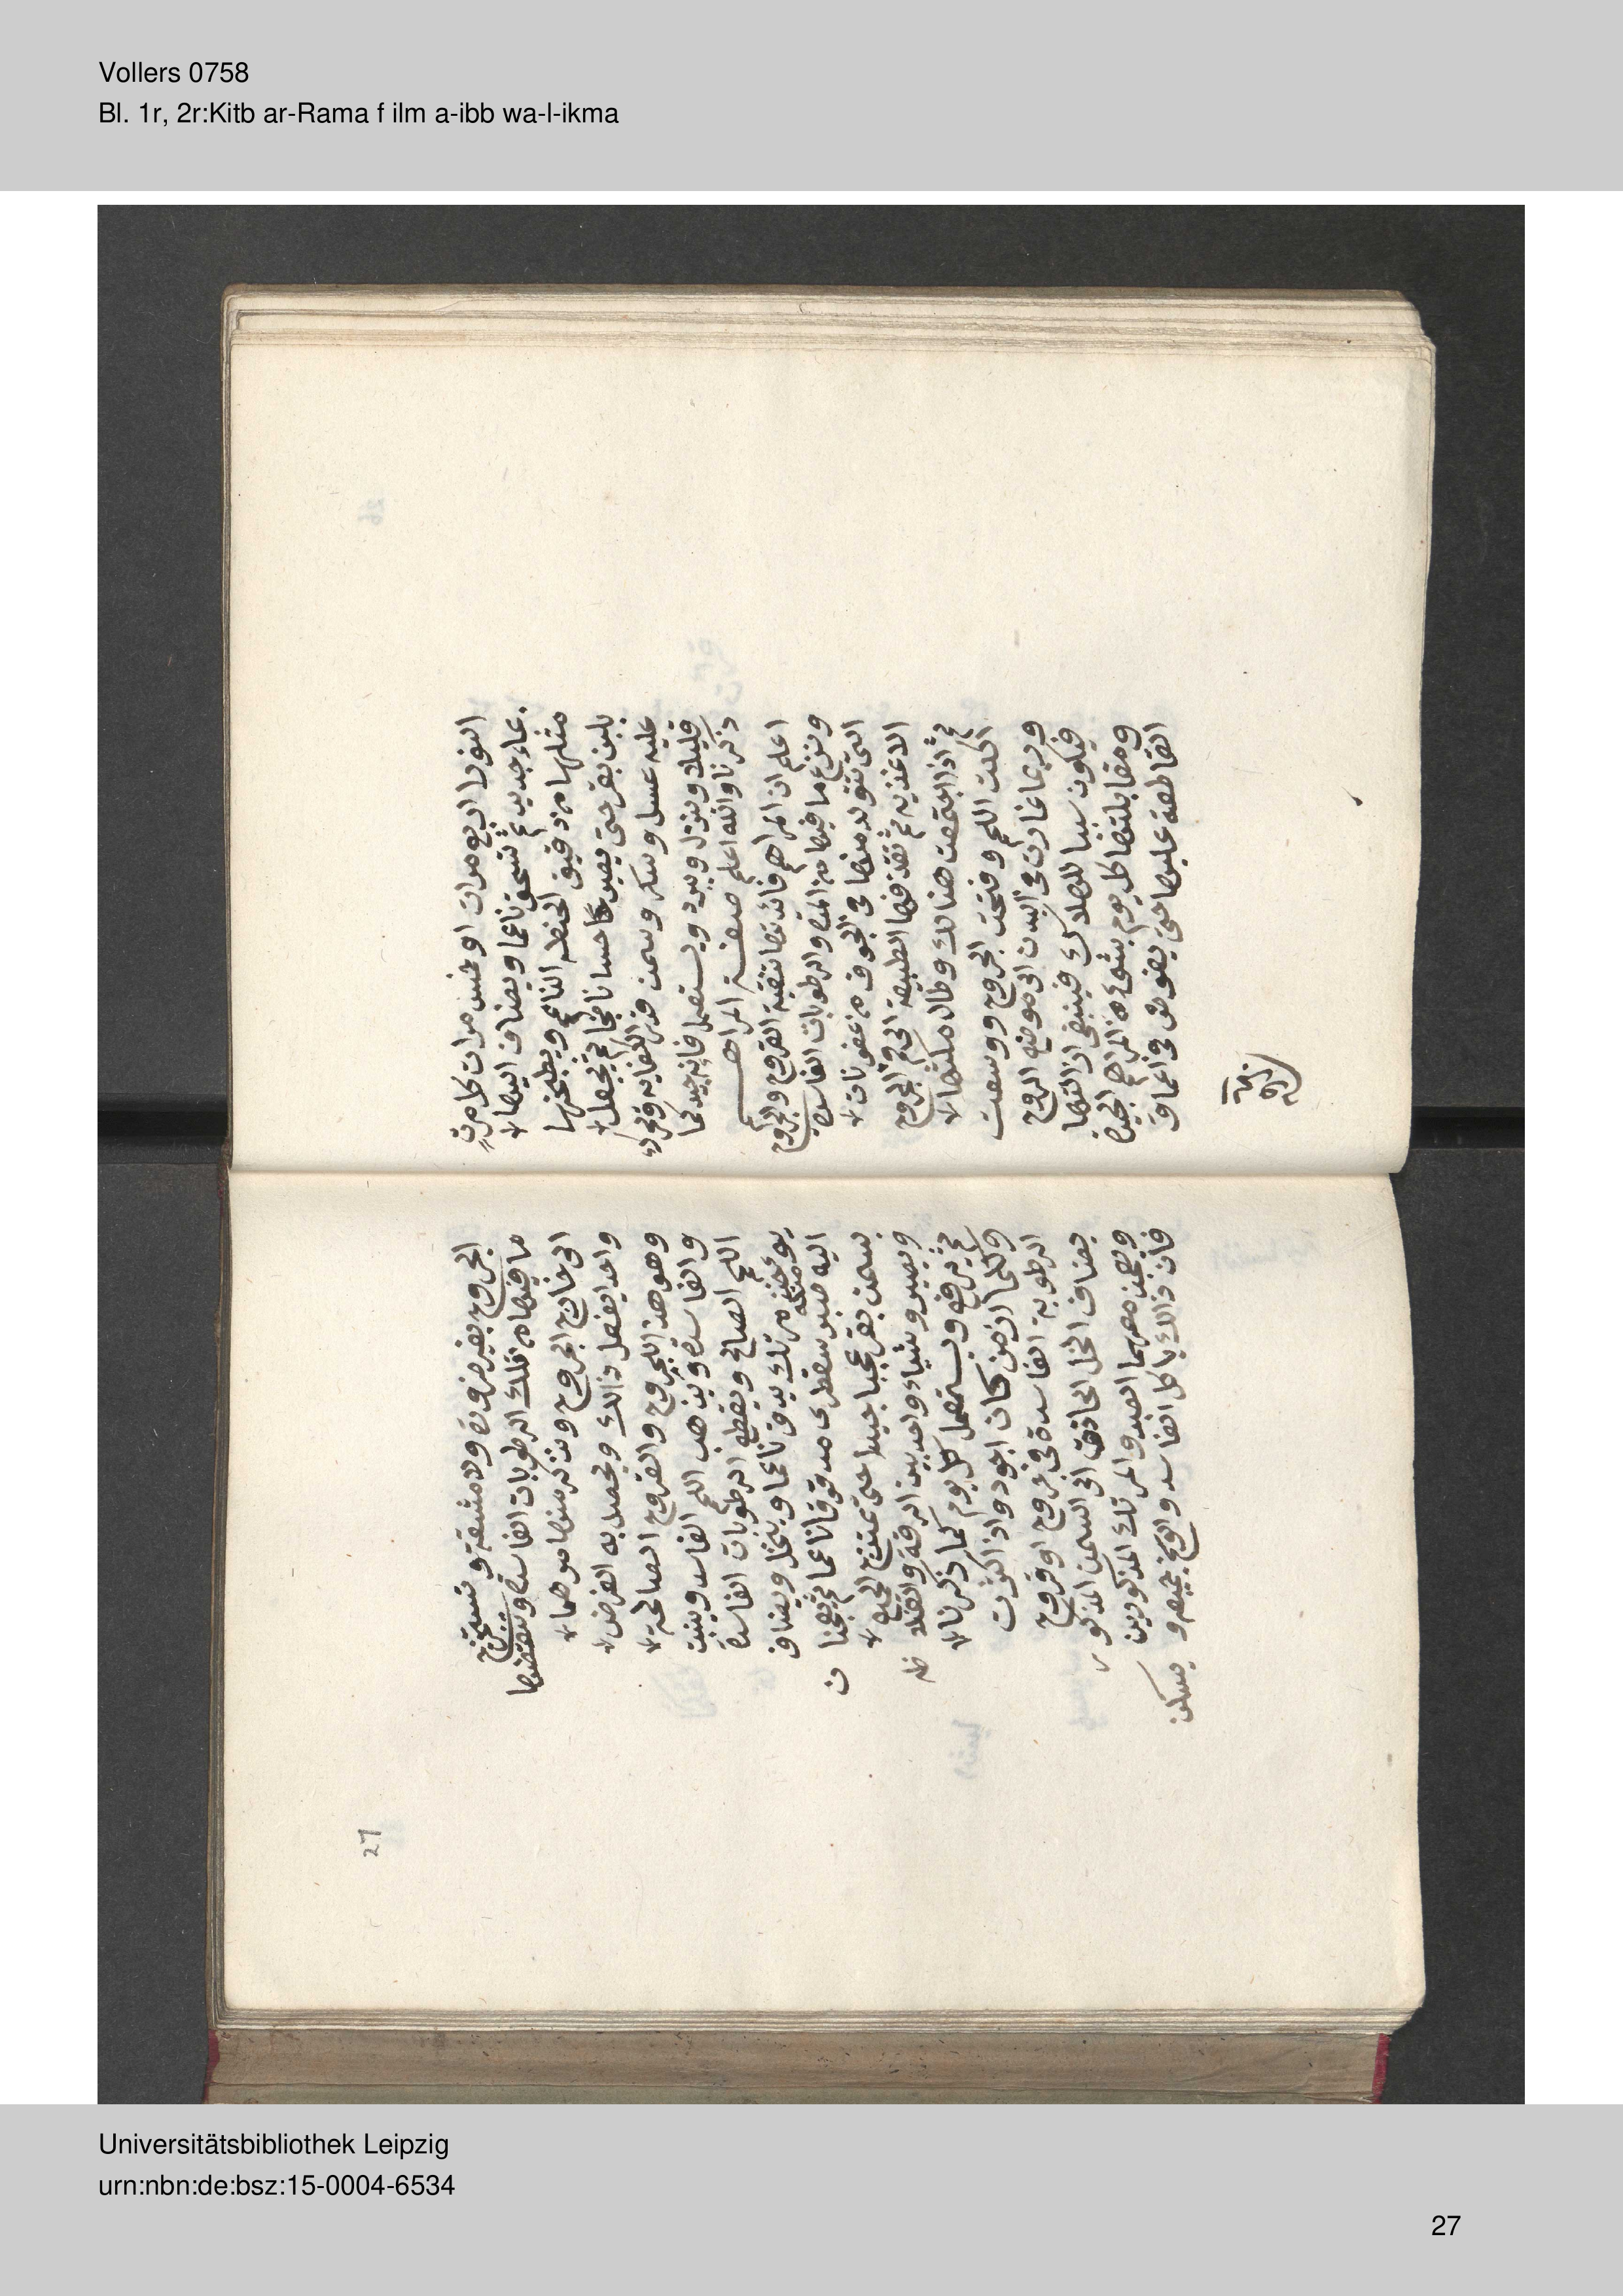 Vollers 0758
Bl. 1r, 2r:Kitb ar-Rama f ilm a-ibb wa-l-ikma
النورا اربع مرات او خمس مرات كل مرة
بماء جديد ثم تسحق ناعما ويضاف اليها
مثلها من دقيق الحنطه الناعم ويطبخها
بلبن بقر حتى يصير كاحسا ناضجا ثم يجعل
عليه عسل وسكر وسمن قدر الكفايه وتحرك
قليلا وينزل ويبرد ويستعمل فانه جيد لما
ذكرنا والله اعلم صفة المراهم
اعلم ان المراهم فائدتها تنقية القروح والجروح
ونزع ما فيها من المدة والرطوبات الفاسدة
التي تتولد منها في الجوف من عفونات
الاغذيه ثم تقذفها الطبيعة الى فم الجروح
ثم اذا اجتمعت هنالك وطال مكثها
اكلت اللحم وفتحت الجروح ووسعت
وربما غارت في البدن الى موضع الروح
فيكون سببا للهلاك فينبغي ازالتها
ومقابلتها كل يوم بشيء من المراهم الجيدة
القاطعة عليها حتى يغوص في اعماق
الجروح بغير ضرورة ولا مشقة وتستخرج
ما فيها من تلك الرطوبات الفاسدة
الى خارج الجروح ونذكر منها مرهما
واحدا يفعل ذالك ويحصل به الغرض
وهو هذا للجروح والقروح الصالحة
والفاسدة ويذهب اللحم الفاسد وينبت
اللحم الصالح ويقطع الرطوبات الفاسدة
يوخذ مرتك يدق ناعما وينخل ويضاف
اليه صبر سقطرى مدقوقا ناعما ثم يعجنان
بسمن بقر عجنا جيدا حتى تمتزج الجميع
ويصير شياء واحد بين الرقة والغلاظه
ثم يرفع ويستعمل كل يوم كما ذكرنا
وكلما ازمن كان اجود واذا كثرت
الرطوبة الفاسدة في جروح او قروح
يضاف الخل الحاذق الى السمن المذكور
ويعجن معهما الصبر والمرتك المذكورين
فان ذالك ياكل الفاسد والوسخ جميعه ويسكن
27
Universitätsbibliothek Leipzig
urn:nbn:de:bsz:15-0004-6534
27